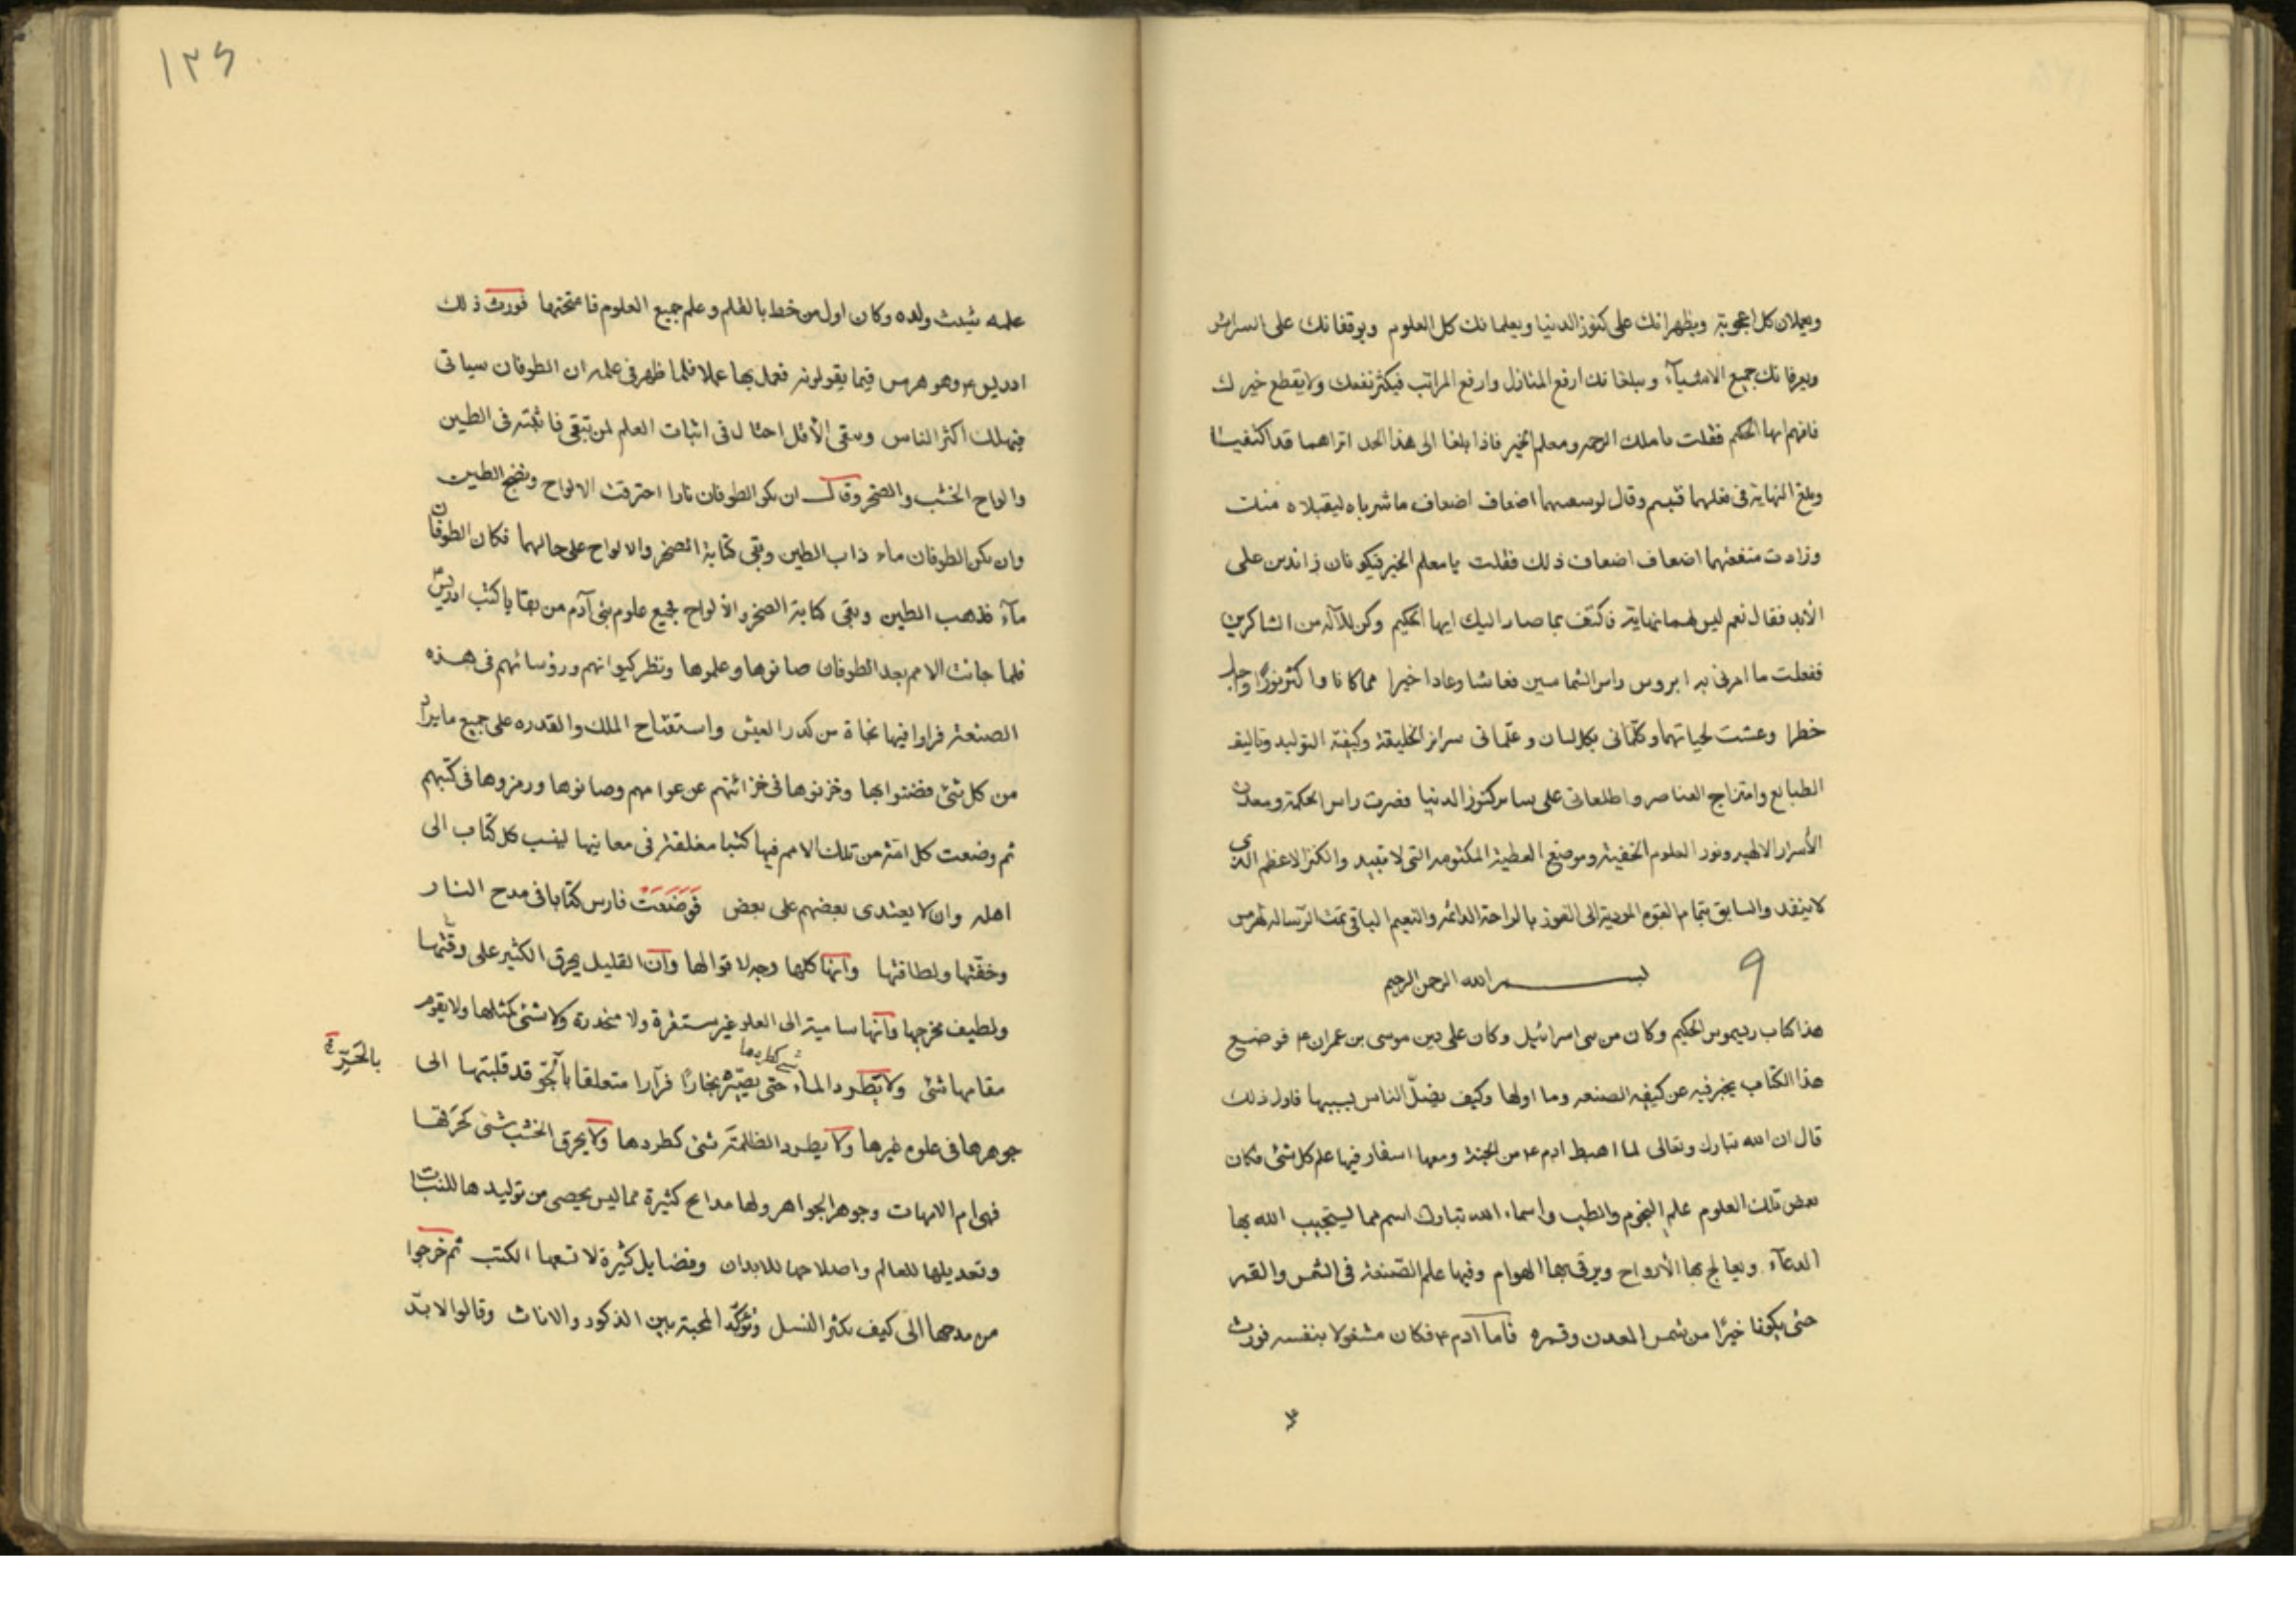 ويعملان كل اعجوبة ويظهرانك على كنوز الدنيا ويعلمانك كل العلوم ويوقفانك على السراير
ويعرفانك جميع الاشيآء ويبلغانك ارفع المنازل وارفع المراتب فيكثر نفعك ولا يقطع خيرك
فافهم ايها الحكيم فقلت يا ملك الرحمه ومعلم الخير فاذا بلغا الى هذا الحد اتراهما قد اكتفيا
وبلغ النهاية فى فعلهما فتبسم وقال لو سعيهما اضعاف اضعاف ما شرباه ليقبلاه منك
وزادت منفعتهما اضعاف اضعاف ذلك فقلت يا معلم الخير فيكونان زائدين على
الأبد فقال نعم ليس لهما نهاية فاكتف بما صار اليك ايها الحكيم وكن للآله من الشاكرين
ففعلت ما امرنى به ابروس راس الشماسين فعاشا وعادا خيرا مما كانا واكثر نورًا واجل
خطرا وعشت لحياتهما وكلمانى بكل لسان وعلّمانى سراير الخليقة وكيفية التوليد وتاليف
الطبايع وامتزاج العناصر واطلعانى على ساير كنوز الدنيا فصرت راس الحكمة ومعدن
الأسرار الالهيه ونور العلوم الخفية وموضع العطية المكتومه التى لا تبيد والكنز الاعظم الذى
لا ينفد والسابق بتمام القوم المودية الى الفوز بالراحة الدائمه والنعيم الباقى تمت الرساله لهرمس
٩ بسم الله الرحمن الرحيم
هذا كتاب ريسموس الحكيم وكان من بنى اسرائيل وكان على دين موسى بن عمران ع فوضع
هذا الكتاب يخبر فيه عن كيفيه الصنعه وما اولها وكيف يضلّ الناس بسببها فاول ذلك
قال ان الله تبارك وتعالى لما اهبط ادم ع من الجنة ومعها اسفار فيها علم كل شئ فكان
بعض تلك العلوم علم النجوم والطب واسماء الله تبارك اسمه مما يستجيب الله بها
الدعآء ويعالج بها الأرواح ويرقى بها الهوام وفيها علم الصّنعة فى الشمس والقمر
حتى يكونا خيرًا من شمس المعدن وقمره فاما آدم ع فكان مشغولا بنفسه فورث
١٢٦
علمه شيث ولده وكان اول من خط بالقلم وعلم جميع العلوم فامتحنها فورث ذلك
ادريس ع وهو هرمس فيما يقولونه فعمل بها عملا فلما ظهر فى علمه ان الطوفان سياتى
فيهلك اكثر الناس ويبقى الأقل احتال فى اثبات العلم لمن تبقى فاثبته فى الطين
والواح الخشب والصخر وقال ان يكن الطوفان نارا احترقت الالواح ونضج الطين
وان يكن الطوفان ماء ذاب الطين وبقى كتابة الصخر والالواح على حالهما فكان الطوفان
مآء فذهب الطين وبقى كتابة الصخر والألواح فجميع علوم بنى آدم من بقايا كتب ادريس
فلما جائت الامم بعد الطوفان صانوها وعلموها ونظر كبراؤهم ورؤسائهم فى هذه
الصنعة فراوا فيها نجاة من كدر العيش واستفتاح الملك والقدره على جميع ما يراد
من كل شئ فضنوا بها وخزنوها فى خزائنهم عن عوامهم وصانوها ورمزوها فى كتبهم
ثم وضعت كل امّة من تلك الامم فيها كتبا مغلقة فى معانيها لينسب كل كتاب الى
اهله وان لا يعتدى بعضهم على بعض فَوَضَعَت فارس كتابا فى مدح النار
وخفّتها ولطافتها وانها كلها وجه لا قوا لها وان القليل يحرق الكثير على رقّتها
ولطيف مخرجها وانها سامية الى العلو غير مستقرة ولا منحدرة ولا شئ كمثلها ولا يقوم
مقامها شئ ولا يطرد الماء شئ كطردها حتى يصيّره بخارًا فرّارا متعلقا بالجوّ قد قلبتها الى
بالحَرّ
جوهرها فى علوه غيرها ولا يطرد الظلمة شئ كطردها ولا يحرق الخشب شئ كحَرقها
فهى ام الامهات وجوهر الجواهر ولها مدايح كثيرة مما ليس يحصى من توليدها للنبات
وتعديلها للعالم واصلاحها للابدان وفضايل كثيرة لا تسعها الكتب ثم خرجوا
من مدحها الى كيف يكثر النسل وتؤكّد المحبة بين الذكور والاناث وقالوا لا بدّ